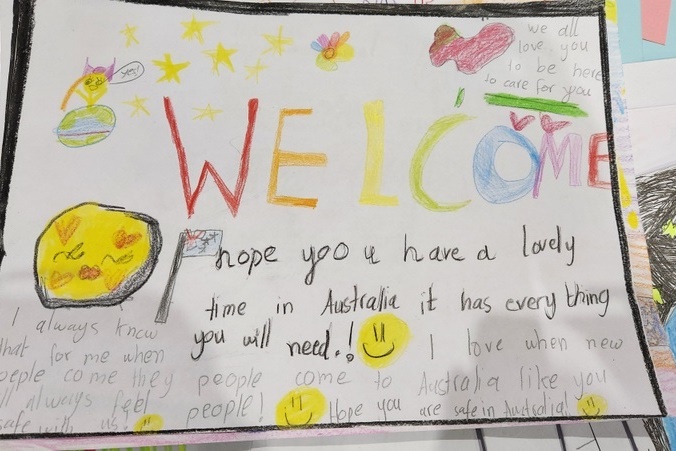 yes!
we all
love you
to be here
so care for you
WELCOME
hope yoo u have a lovely
time in Australia it has every thing
you will need.!
I always know
that for me when
people come they
ll always feel
safe with us!
I love when new
people come to Australia like you
people! Hope you are safe in Australia!